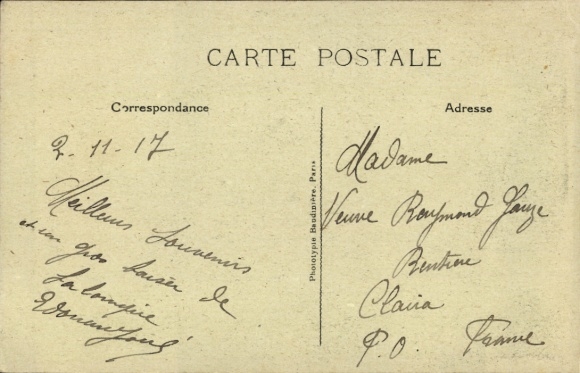 CARTE POSTALE
Correspondance
2-11-17
Meilleurs souvenirs
et un gros baiser de
Salonique
Phototypie Baudinière, Paris
Adresse
Madame
Veuve Raymond
Rentière
Claira
P.O. France